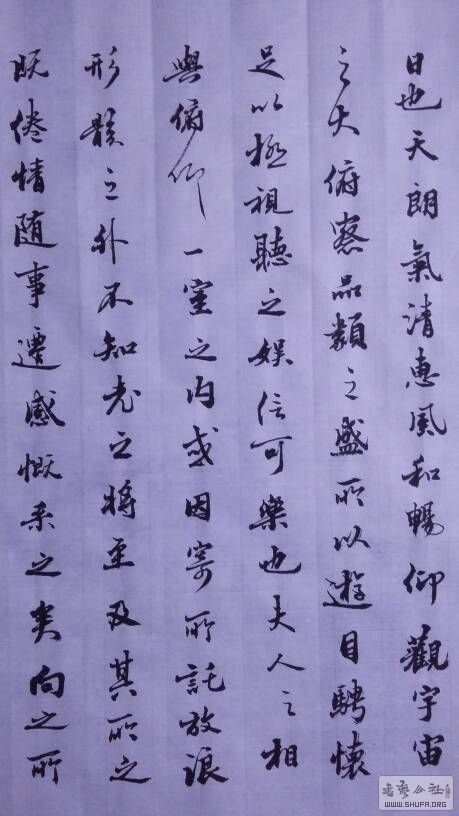 日也天朗氣清惠風和暢仰觀宇宙
之大俯察品類之盛所以遊目騁懷
足以極視聽之娱信可樂也夫人之相
與俯仰一室之内或因寄所託放浪
形骸之外不知老之將至及其所之
既倦情随事遷感慨系之矣向之所
書藝公社
WWW.SHUFA.ORG